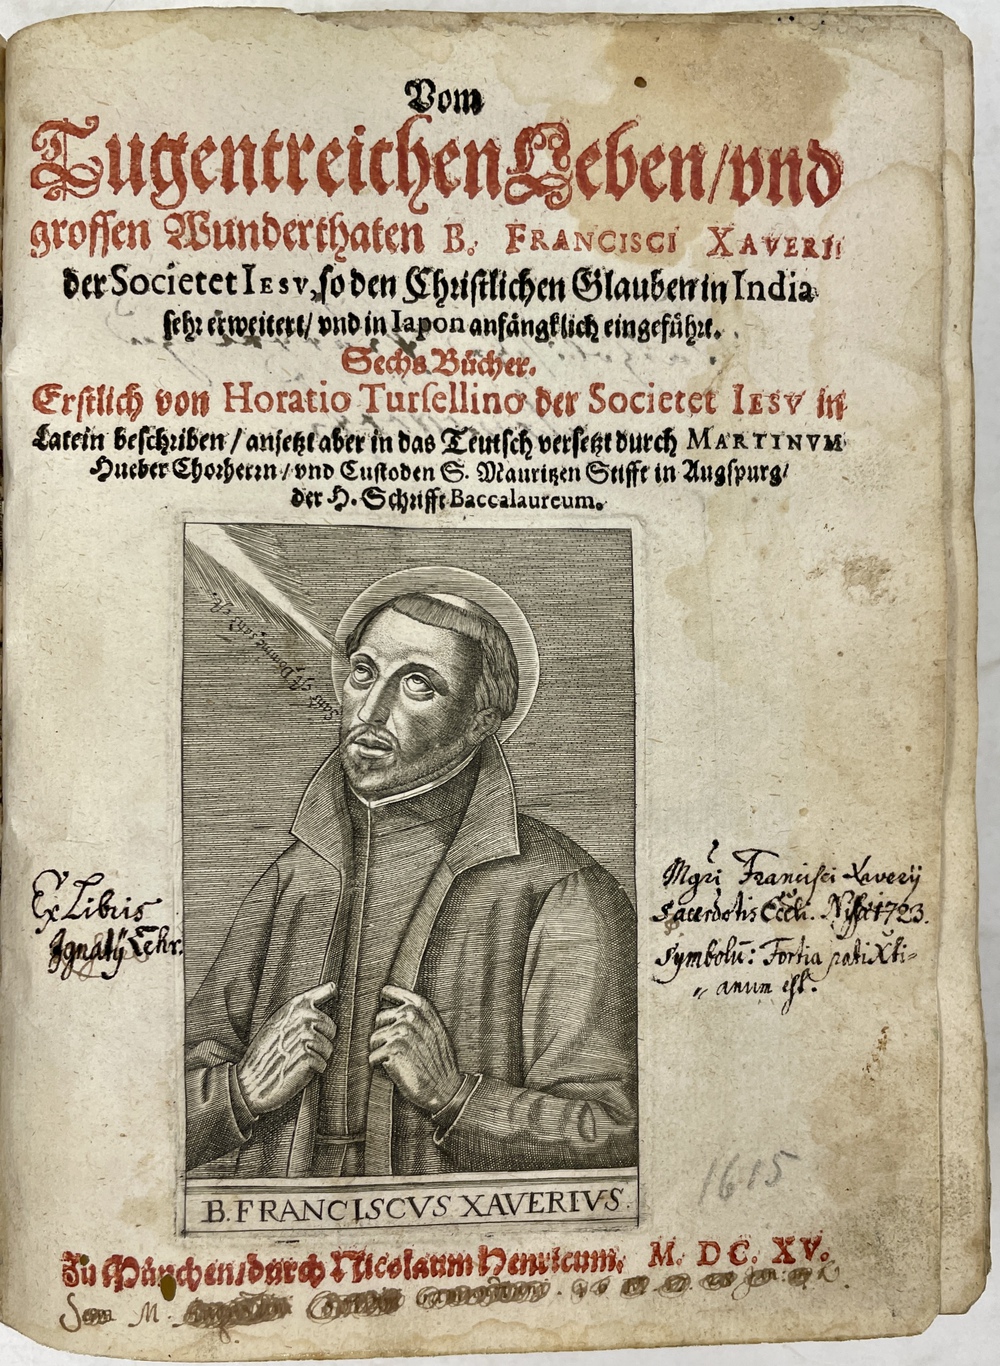 Vom
Tugentreichen Leben/vnd
grossen Wunderthaten B. FRANCISCI XAVERII
der Societet IESV, so den Christlichen Glauben in India
sehr erweitert/ vnd in Iapon anfängklich eingeführt.
Sechs Bücher.
Erstlich von Horatio Tursellino der Societet IESV in
Latein beschriben / anjetzt aber in das Teutsch versetzt durch MARTINVM
Hueber Chorherrn/ vnd Custoden S. Mauritzen Stifft in Augspurg/
der H. Schrifft Baccalaureum.
Satis est Domine, satis est.
Ex Libris
Ignatÿ
Mgri Francisci Xaverÿ
Sacerdotis 1723.
Symbolū: Fortia pati Xti-
anum est.
1615
B. FRANCISCVS XAVERIVS.
Zu München/durch Nicolaum Henricum. M. DC. XV.
M.